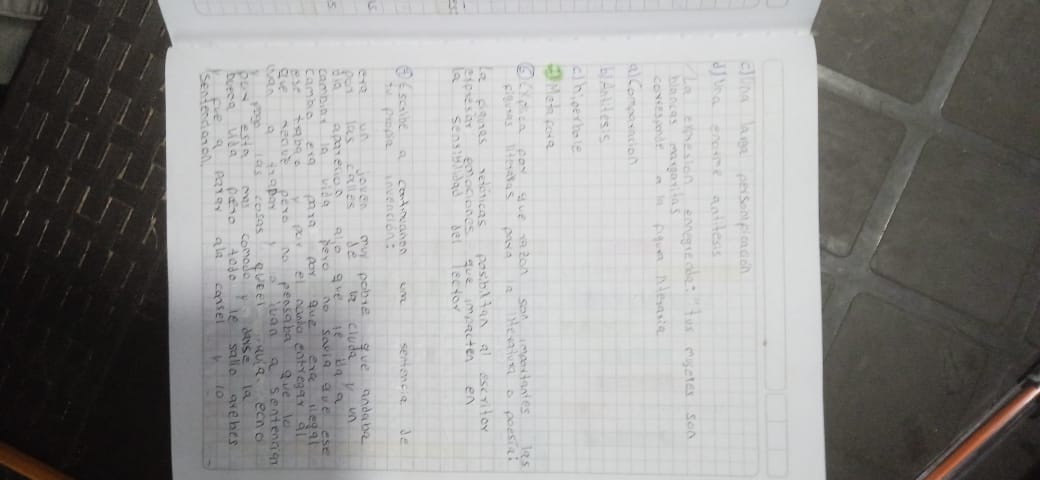 c) Una larga personificación
d) Una enorme antitesis
La expresion ennegrecida: "tus mugeres son
blancas margaritas
corresponde a la figura literaria
a) Comparacion
b) Antitesis
c) hiperbole
d) Metafora
⑥ Explica por que razon son importantes las
figuras literarias para a literatura o poesia:
la figuras retóricas posibiltan al escritor
expresar emociones que impacten en
la sensibilidad del lector
⑦ Escribe a continuanon una sentencia de
tu propia invención:
era un joven muy pobre que andaba
por las calles de la ciuda y un
dia aparecio algo que le iba a
cambiar la vida pero no savia que ese
cambio era para por que era ilegal
ese trabajo y por el
que recive pero no pensaba que lo
ivan a tropar y o ivan a sentenciar
y pago las cosas que el avia echo
pero esta mas comodo y darse la
buena vida pero todo le salio arebes
y fue a parar ala carsel y lo
sentenciaron